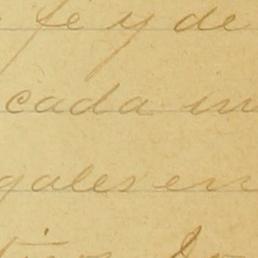 fe y de
cada un
gales en